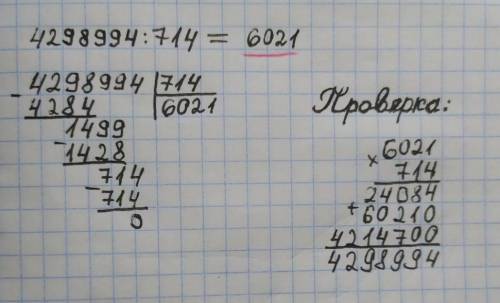 4298994:714 = 6021
- 4298994 | 714
4284 | 6021
- 1499
1428
- 714
714
0
Проверка:
× 6021
714
24084
+ 60210
4214700
4298994